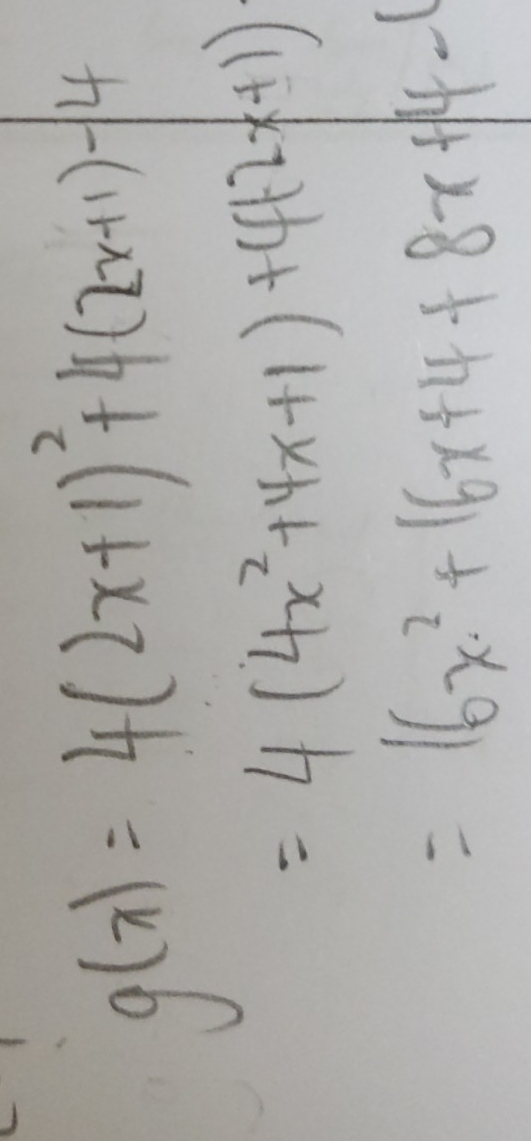 g(x) = 4(2x+1)² + 4(2x+1) - 4
= 4(4x² + 4x + 1) + 4(2x+1)
= 16x² + 16x + 4 + 8x + 4 -